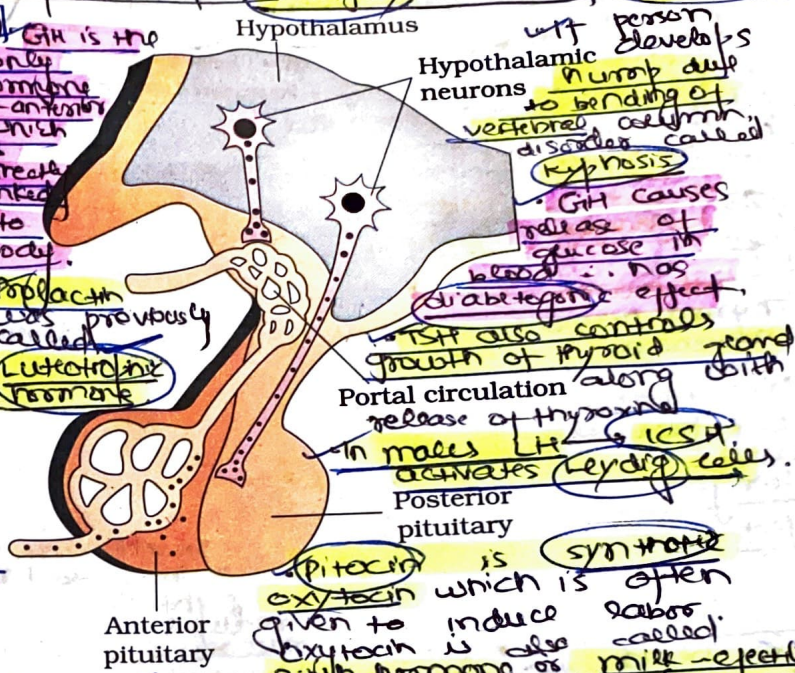 Hypothalamus
Hypothalamic
neurons
Portal circulation
Posterior
pituitary
Anterior
pituitary
GH is the
only
-anterior
to
body.
Prolactin
was previously
called
Luteotrophic
hormone
If person
develops
hump due
to bending of
vertebral column,
disorder called
Kyphosis
GH causes
release of
glucose in
blood ∴ has
diabetegonic effect.
TSH also controls
growth of thyroid gland
along with
release of thyroxine
In males LH → ICSH
activates Leydig cells.
Pitocin is synthetic
oxytocin which is often
given to induce labor.
Oxytocin is also called
hormone or milk-ejecti